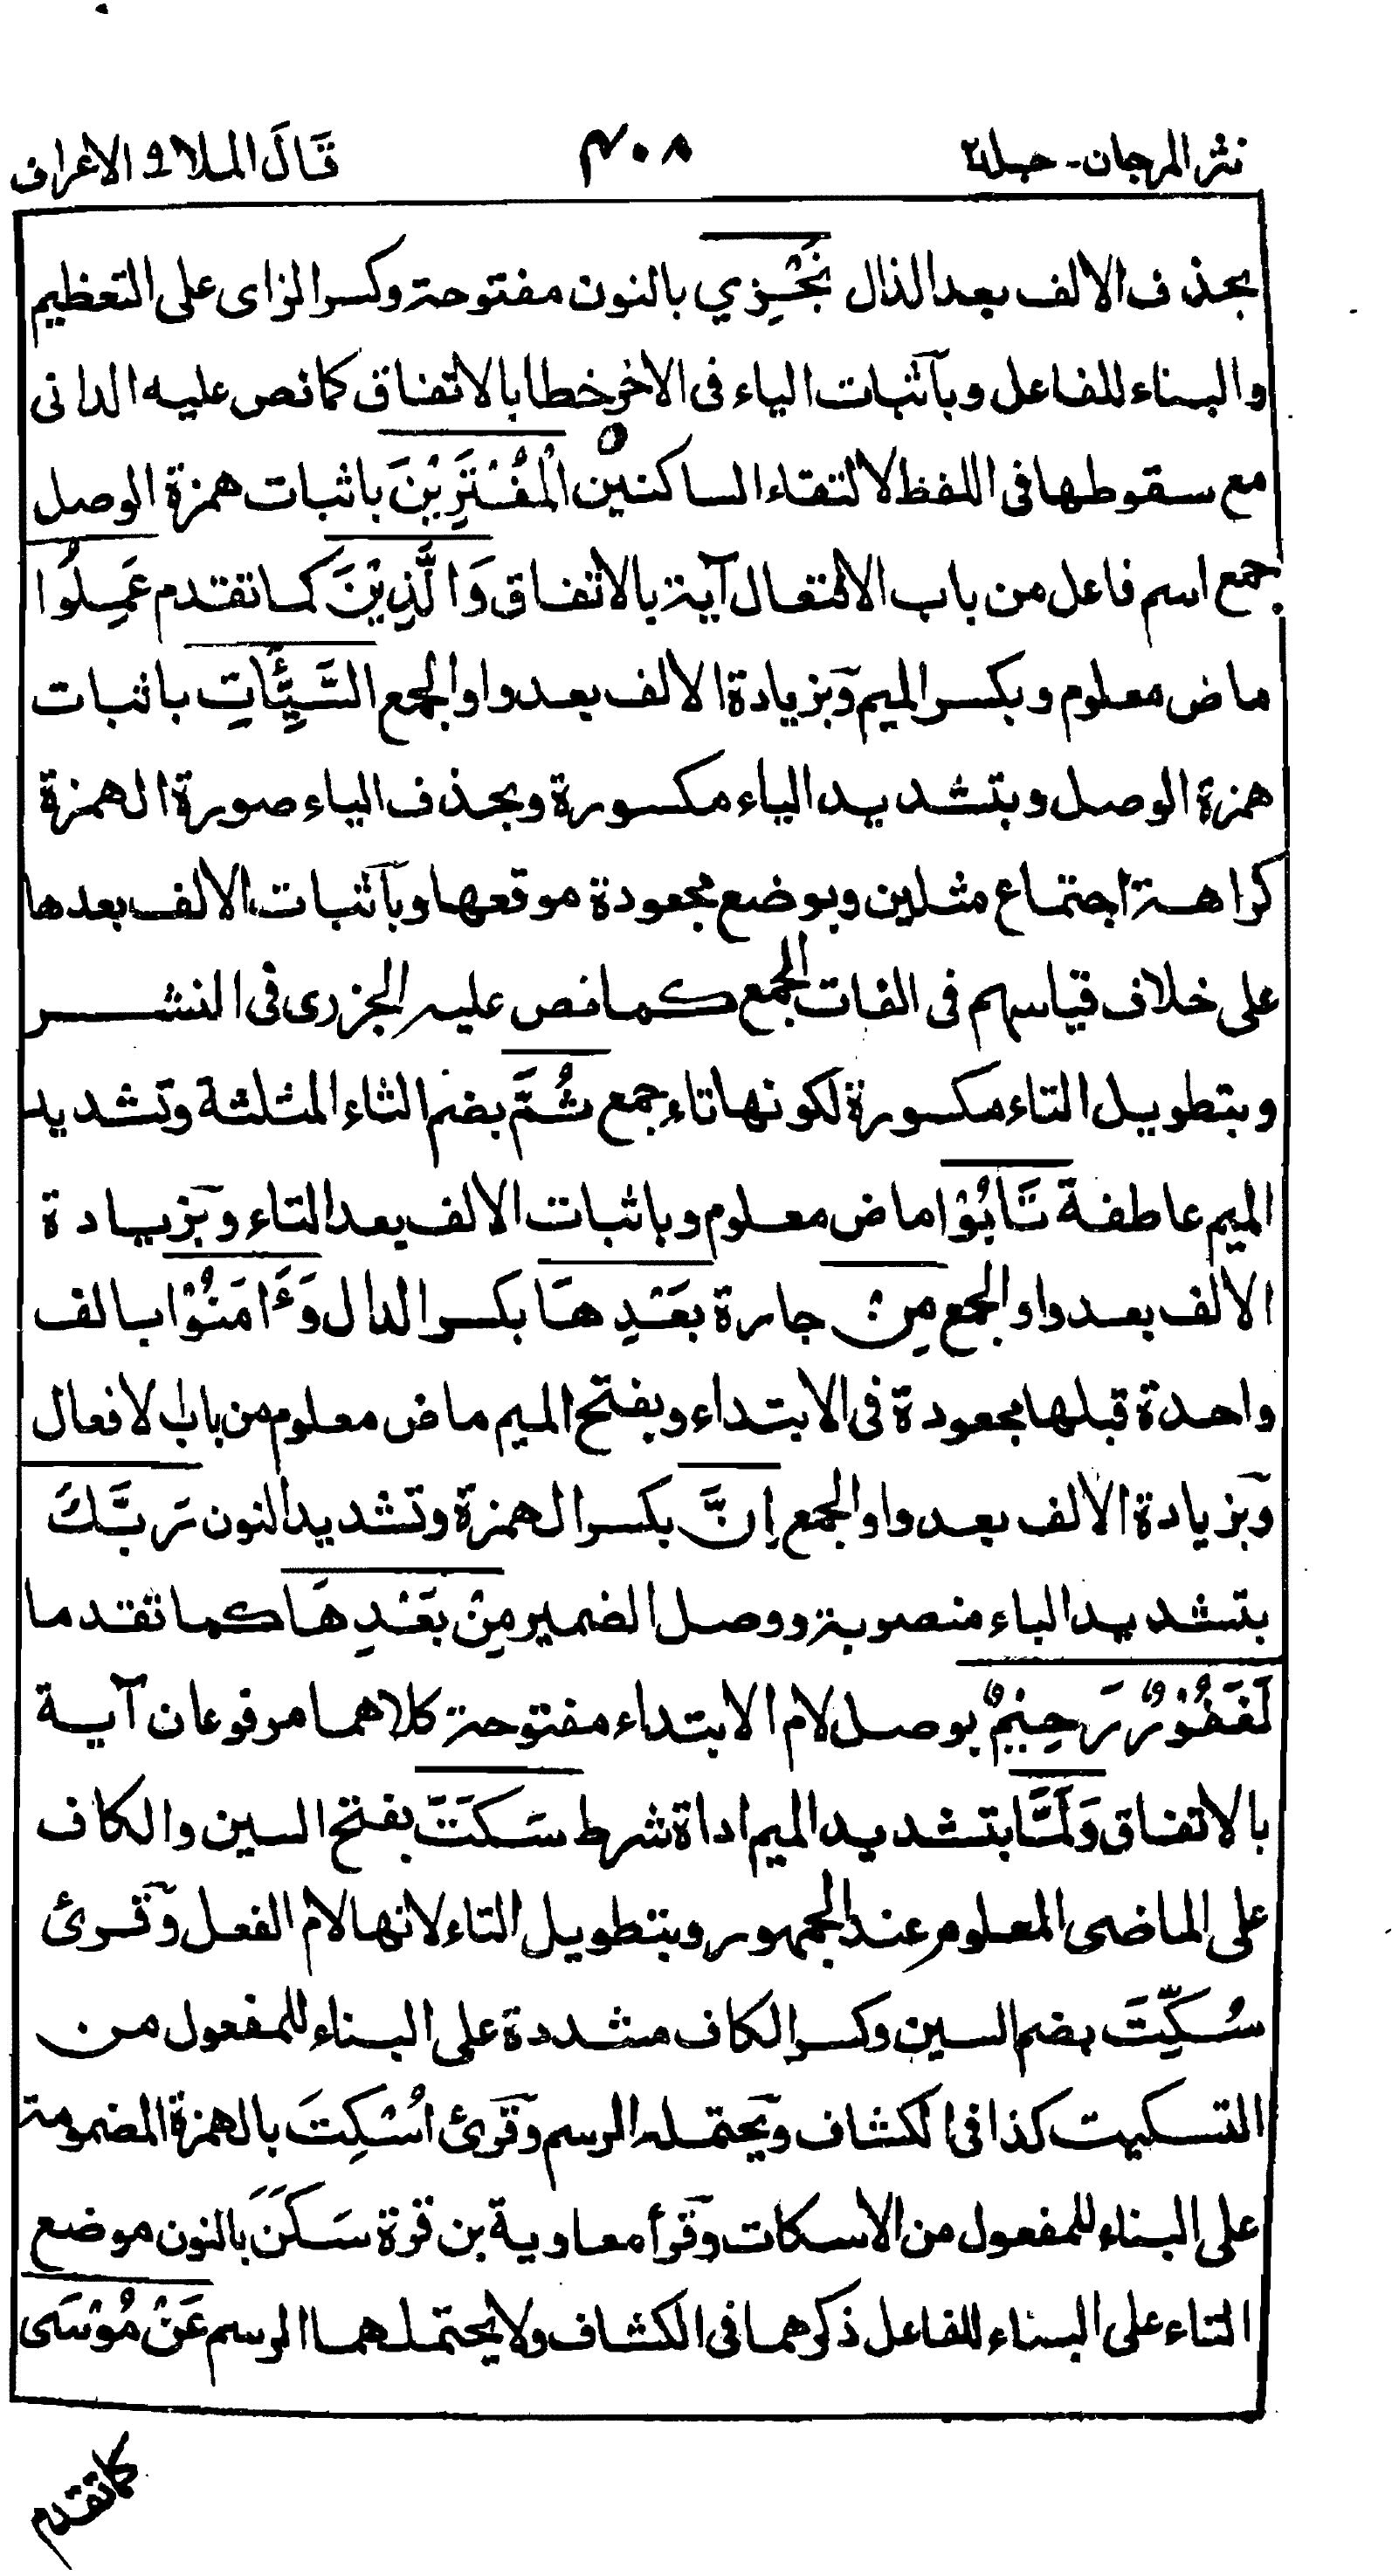 نثر المرجان - جلد٢ ٤٠٨ قَالَ الملا ٩ الاعراف
بحذف الالف بعد الذال نَجْزِي بالنون مفتوحة وكسر الزاى على التعظيم
والبناء للفاعل وبآثبات الياء فى الاخر خطا بالاتفاق كما نص عليه الدانى
مع سقوطها فى اللفظ لالتقاء الساكنين الْمُفْتَرِيْنَ باثبات همزة الوصل
جمع اسم فاعل من باب الافتعال آية بالاتفاق وَالَّذِيْنَ كما تقدم عَمِلُوا
ماض معلوم وبكسر الميم وَبزيادة الالف بعد واو الجمع السَّيِّئَاتِ باثبات
همزة الوصل وبتشديد الياء مكسورة وبحذف الياء صورة الهمزة
كراهة اجتماع مثلين وبوضع مجعودة موقعها وبآثبات الالف بعدها
على خلاف قياسهم فى الفات الجمع كما نص عليه الجزرى فى النشر
وبتطويل التاء مكسورة لكونها تاء جمع ثُمَّ بضم الثاء المثلثة وتشديد
الميم عاطفة تَابُوْا ماض معلوم وباثبات الالف بعد التاء وبزيادة
الالف بعد واو الجمع مِنْ جارة بَعْدِهَا بكسر الدال وَءَامَنُوْا بالف
واحدة قبلها مجعودة فى الابتداء وبفتح الميم ماض معلوم من باب الافعال
وبزيادة الالف بعد واو الجمع اِنَّ بكسر الهمزة وتشديد النون رَبَّكَ
بتشديد الباء منصوبة ووصل الضمير مِنْ بَعْدِهَا كما تقدما
لَغَفُوْرٌ رَحِيْمٌ بوصل لام الابتداء مفتوحة كلاهما مرفوعان آية
بالاتفاق وَلَمَّا بتشديد الميم اداة شرط سَكَتَ بفتح السين والكاف
على الماضى المعلوم عند الجمهور وبتطويل التاء لانها لام الفعل وقرئ
سُكِّتَ بضم السين وكسر الكاف مشددة على البناء للمفعول من
التسكيت كذا فى الكشاف ويحتمله الرسم وقرئ اُسْكِتَ بالهمزة المضمومة
على البناء للمفعول من الاسكات وقرأ معاوية بن قرة سَكَنَ بالنون موضع
التاء على البناء للفاعل ذكرهما فى الكشاف ولا يحتملهما الرسم عَنْ مُوْسَى
كما تقدم